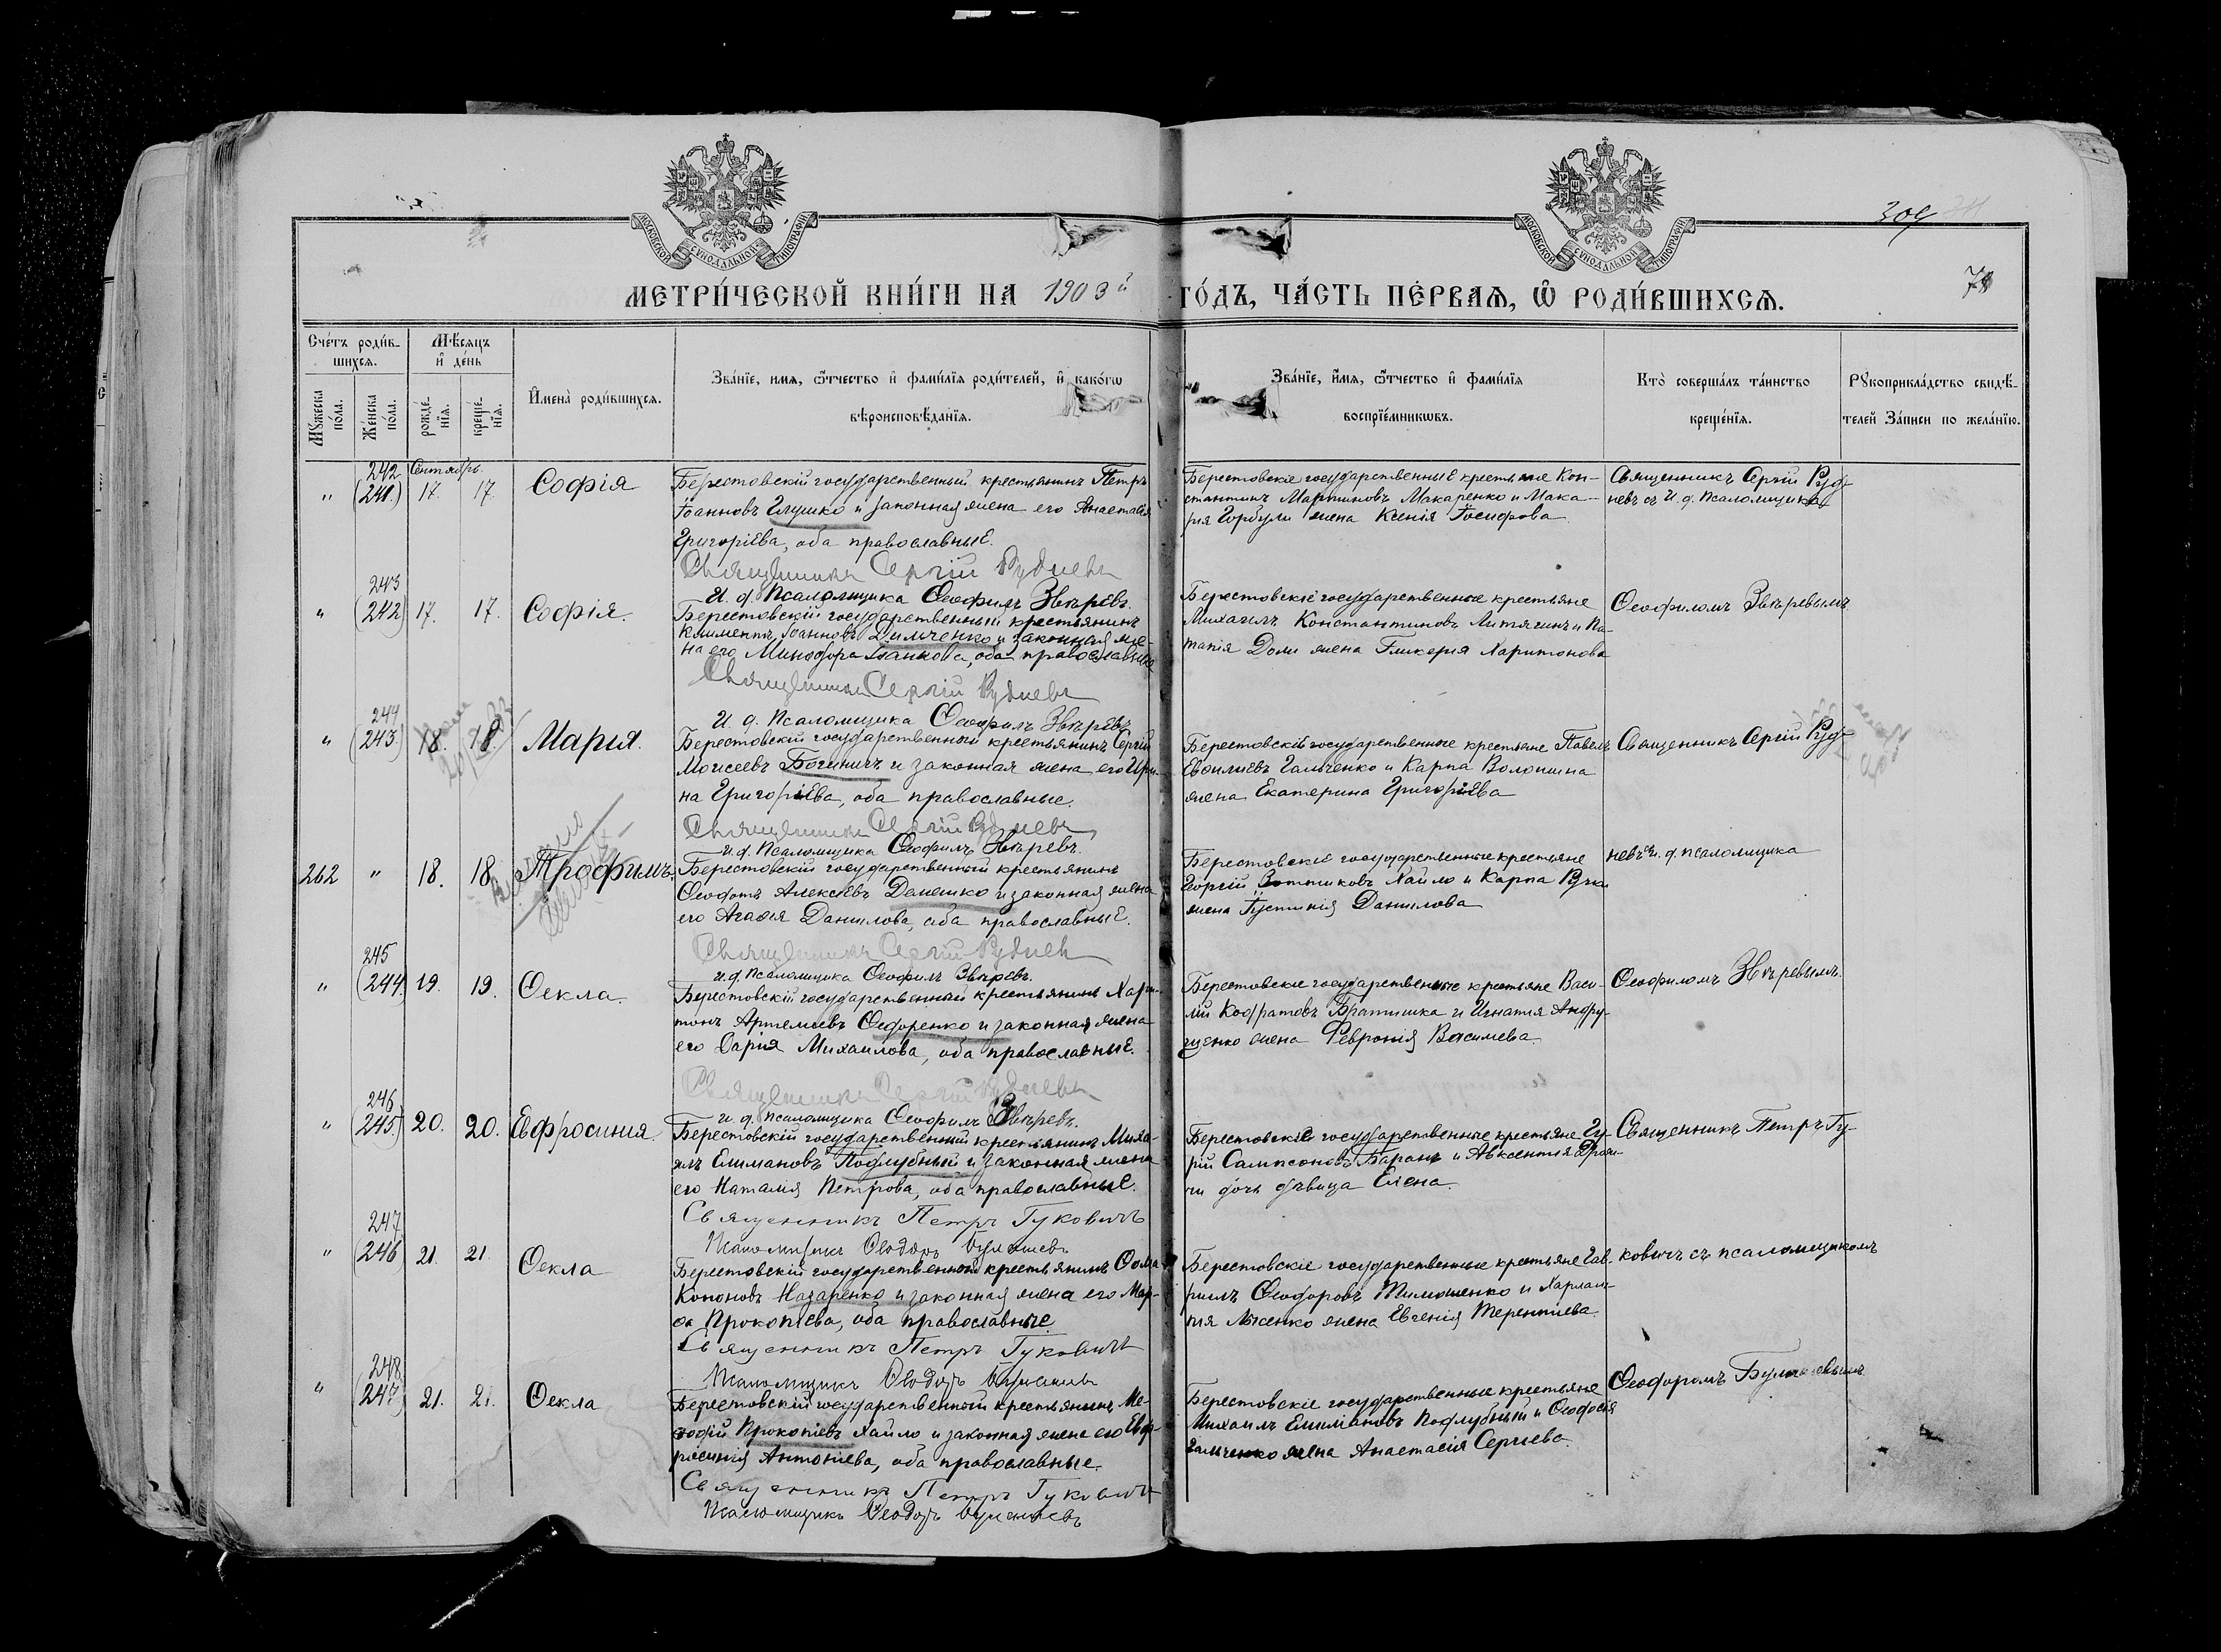 309
МОСКОВСКОЙ СѴНОДАЛЬНОЙ ТИПОГРАФІИ
МОСКОВСКОЙ СѴНОДАЛЬНОЙ ТИПОГРАФІИ
МЕТРИ́ЧЕСКОЙ КНИ́ГИ НА 1903й ГО́ДЪ, ЧА́СТЬ ПЕ́РВАѦ, Ѡ҆ РОДИ́ВШИХСѦ.
Сче́тъ роди́в-
шихсѧ.
Мѣ́сѧцъ
и҆ де́нь
Мꙋ́жеска
по́ла.
Же́нска
по́ла.
рожде́-
нїѧ.
креще́-
нїѧ.
И҆мена̀ роди́вшихсѧ.
Зва́нїе, имѧ, ѻ҆́тчество и҆ фами́лїѧ роди́телей, и҆ како́гѡ
вѣроисповѣ́данїѧ.
Зва́нїе, и҆́мѧ, ѻ҆́тчество и҆ фами́лїѧ
воспрїе́мникѡвъ.
Кто̀ соверша́лъ та́инство
креще́нїѧ.
Рꙋкоприкла́дство свидѣ́-
телей За́писи по жела́нїю.
Сентябрь.
" 242 (241.) 17. 17. Софія
Берестовскій государственный крестьянинъ Петръ
Іоанновъ Глушко и законная жена его Анастасія
Григоріева, оба православные.
Священникъ Сергій Рудневъ
И. д. Псаломщика Ѳеофилъ Звѣревъ.
Берестовскіе государственные крестьяне Кон-
стантинъ Мартиновъ Макаренко и Мака-
рія Горбули жена Ксенія Іосифова
Священникъ Сергій Руд-
невъ съ И. д. Псаломщика
" 243 (242) 17. 17. Софія.
Берестовскій государственный крестьянинъ
Климентъ Іоанновъ Димченко и законная же-
на его Минодора Іоаннова, оба православные
Священникъ Сергій Рудневъ
И. д. Псаломщика Ѳеофилъ Звѣревъ
Берестовскіе государственные крестьяне
Михаилъ Константиновъ Литягинъ и По-
тапія Доли жена Гликерія Харитонова
Ѳеофиломъ Звѣревымъ
" 244 (243.) 18. 18. Марія.
Берестовскій государственный крестьянинъ Сергій
Моисеевъ Богиничъ и законная жена его Ири-
на Григоріева, оба православные.
Священникъ Сергій Рудневъ
И. д. Псаломщика Ѳеофилъ Звѣревъ.
Берестовскіе государственные крестьяне Павелъ
Галченко и Карпа Волошина
жена Екатерина Григоріева
Священникъ Сергій Руд-
262 " 18. 18. Трофимъ.
Берестовскій государственный крестьянинъ
Ѳеодотъ Алексѣевъ Демешко и законная жена
его Агафія Данилова, оба православные.
Священникъ Сергій Рудневъ
И. д. Псаломщика Ѳеофилъ Звѣревъ.
Берестовскіе государственные крестьяне
Георгій Хайло и Карпа
жена Іустинія Данилова
невъ съ и. д. псаломщика
" 245 (244) 19. 19. Ѳекла.
Берестовскій государственный крестьянинъ Хари-
тонъ Артемьевъ Ѳедоренко и законная жена
его Дарія Михаилова, оба православные.
Священникъ Сергій Рудневъ
и. д. псаломщика Ѳеофилъ Звѣревъ.
Берестовскіе государственные крестьяне Васи-
лій Кодратовъ Братишка и Игнатія Андру-
щенко жена Февронія Васильева.
Ѳеофиломъ Звѣревымъ.
" 246 (245.) 20. 20. Евфросинія.
Берестовскій государственный крестьянинъ Миха-
илъ Емиліановъ Поддубный и законная жена
его Наталія Петрова, оба православные.
Священникъ Петръ Гуковичъ
Псаломщикъ Ѳеодоръ
Берестовскіе государственные крестьяне Гу-
рій Сампсоновъ Баранъ и Авксентія
дочь дѣвица Елена.
Священникъ Петръ Гу-
" 247 (246 21. 21. Ѳекла
Берестовскій государственный крестьянинъ Ѳома
Кононовъ Назаренко и законная жена его Мар-
ѳа Прокопіева, оба православные.
Священникъ Петръ Гуковичъ
Псаломщикъ Ѳеодоръ
Берестовскіе государственные крестьяне Гав-
риилъ Ѳеодоровъ Тимошенко и Харлам-
пія Лысенко жена Евгенія Терентіева.
ковичъ съ псаломщикомъ
" 248 (247) 21. 21. Ѳекла
Берестовскій государственный крестьянинъ Ме-
ѳодій Прокопіевъ Хайло и законная жена его Евф-
росинія Антоніева, оба православные.
Священникъ Петръ Гуковичъ
Псаломщикъ Ѳеодоръ
Берестовскіе государственные крестьяне
Михаилъ Емиліановъ Поддубный и Ѳеодосія
Галченко жена Анастасія Сергіева.
Ѳеодоромъ